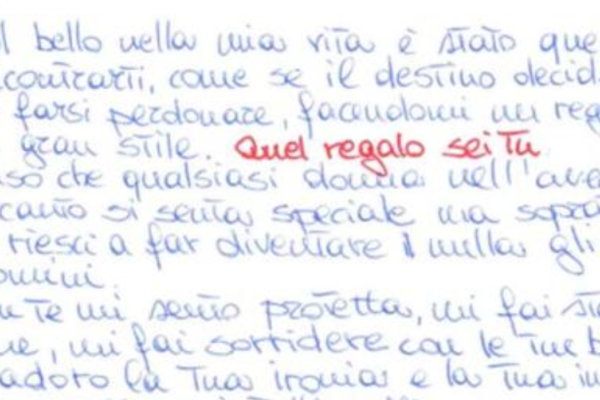 l bello nella mia vita è stato que
contrarti, come se il destino decid
farsi perdonare, facendomi un reg
gran stile. Quel regalo sei Tu
nso che qualsiasi donna nell'ave
canto si senta speciale ma sopra
riesci a far diventare nulla gli
omini.
n te mi sento protetta, mi fai st
ne, mi fai sorridere con le tue b
adoro la Tua ironia e la Tua in